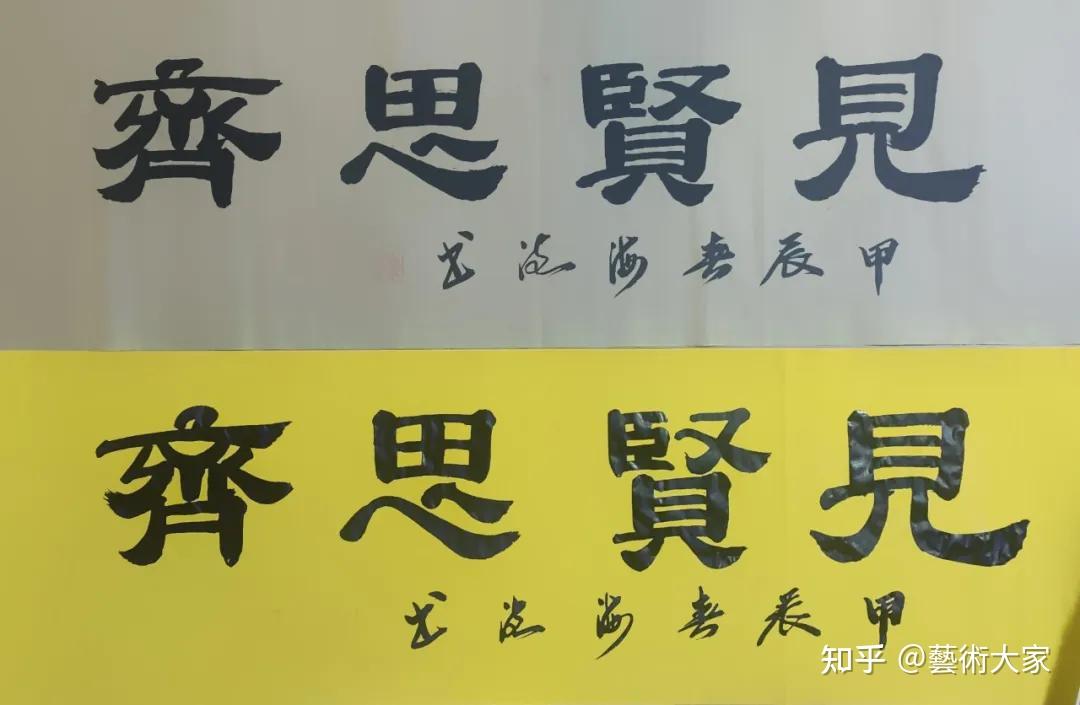 見賢思齊
甲辰春海书
見賢思齊
甲辰春海书
知乎 @藝術大家